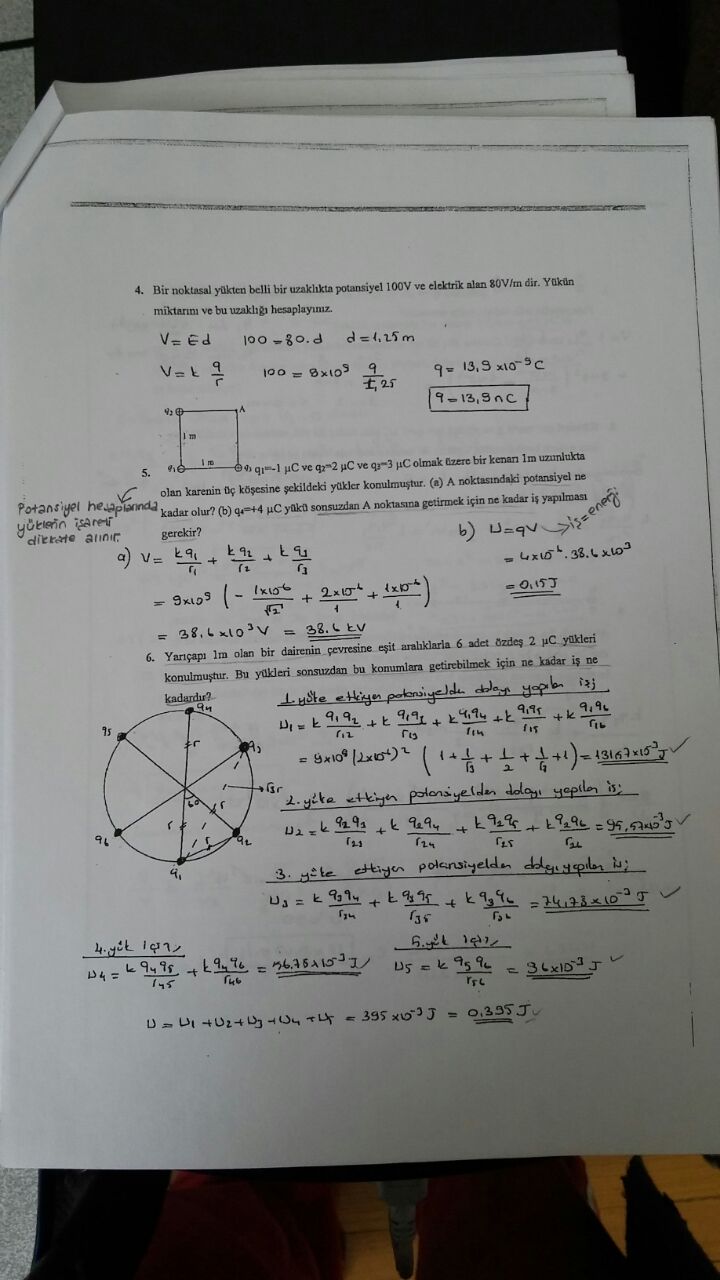 4. Bir noktasal yükten belli bir uzaklıkta potansiyel 100V ve elektrik alan 80V/m dir. Yükün
miktarını ve bu uzaklığı hesaplayınız.
V = Ed 100 = 80.d d = 1,25 m
V = k q/r 100 = 9x10⁹ q/1,25 q = 13,9 x10⁻⁹ C
q = 13,9 nC
q₂ A
1 m
q₁ 1 m q₃
5. q₁=-1 μC ve q₂=2 μC ve q₃=3 μC olmak üzere bir kenarı 1m uzunlukta
olan karenin üç köşesine şekildeki yükler konulmuştur. (a) A noktasındaki potansiyel ne
kadar olur? (b) q₄=+4 μC yükü sonsuzdan A noktasına getirmek için ne kadar iş yapılması
gerekir?
Potansiyel hesaplarında
yüklerin işareti
dikkate alınır.
a) V = kq₁/r₁ + kq₂/r₂ + kq₃/r₃
= 9x10⁹ ( - 1x10⁻⁶/√2 + 2x10⁻⁶/1 + 1x10⁻⁶/1 )
= 38,6 x10³ V = 38.6 kV
b) U = qV → iş=enerji
= 4x10⁻⁶ . 38.6 x10³
= 0,15 J
6. Yarıçapı 1m olan bir dairenin çevresine eşit aralıklarla 6 adet özdeş 2 μC yükleri
konulmuştur. Bu yükleri sonsuzdan bu konumlara getirebilmek için ne kadar iş ne
kadardır?
q₄
q₅
q₃
r
√3r
60
r
r
q₆
q₂
r
q₁
1. yüke etkiyen potansiyelden dolayı yapılan iş;
U₁ = k q₁q₂/r₁₂ + k q₁q₃/r₁₃ + k q₁q₄/r₁₄ + k q₁q₅/r₁₅ + k q₁q₆/r₁₆
= 9x10⁹ (2x10⁻⁶)² ( 1 + 1/√3 + 1/2 + 1/√3 + 1 ) = 131,57x10⁻³ J ✓
2. yüke etkiyen potansiyelden dolayı yapılan iş;
U₂ = k q₂q₃/r₂₃ + k q₂q₄/r₂₄ + k q₂q₅/r₂₅ + k q₂q₆/r₂₆ = 95,57x10⁻³ J ✓
3. yüke etkiyen potansiyelden dolayı yapılan iş;
U₃ = k q₃q₄/r₃₄ + k q₃q₅/r₃₅ + k q₃q₆/r₃₆ = 74,78x10⁻³ J ✓
4. yük için;
U₄ = k q₄q₅/r₄₅ + k q₄q₆/r₄₆ = 56.78x10⁻³ J ✓
5. yük için;
U₅ = k q₅q₆/r₅₆ = 36x10⁻³ J ✓
U = U₁ + U₂ + U₃ + U₄ + U₅ = 395 x10⁻³ J = 0,395 J ✓